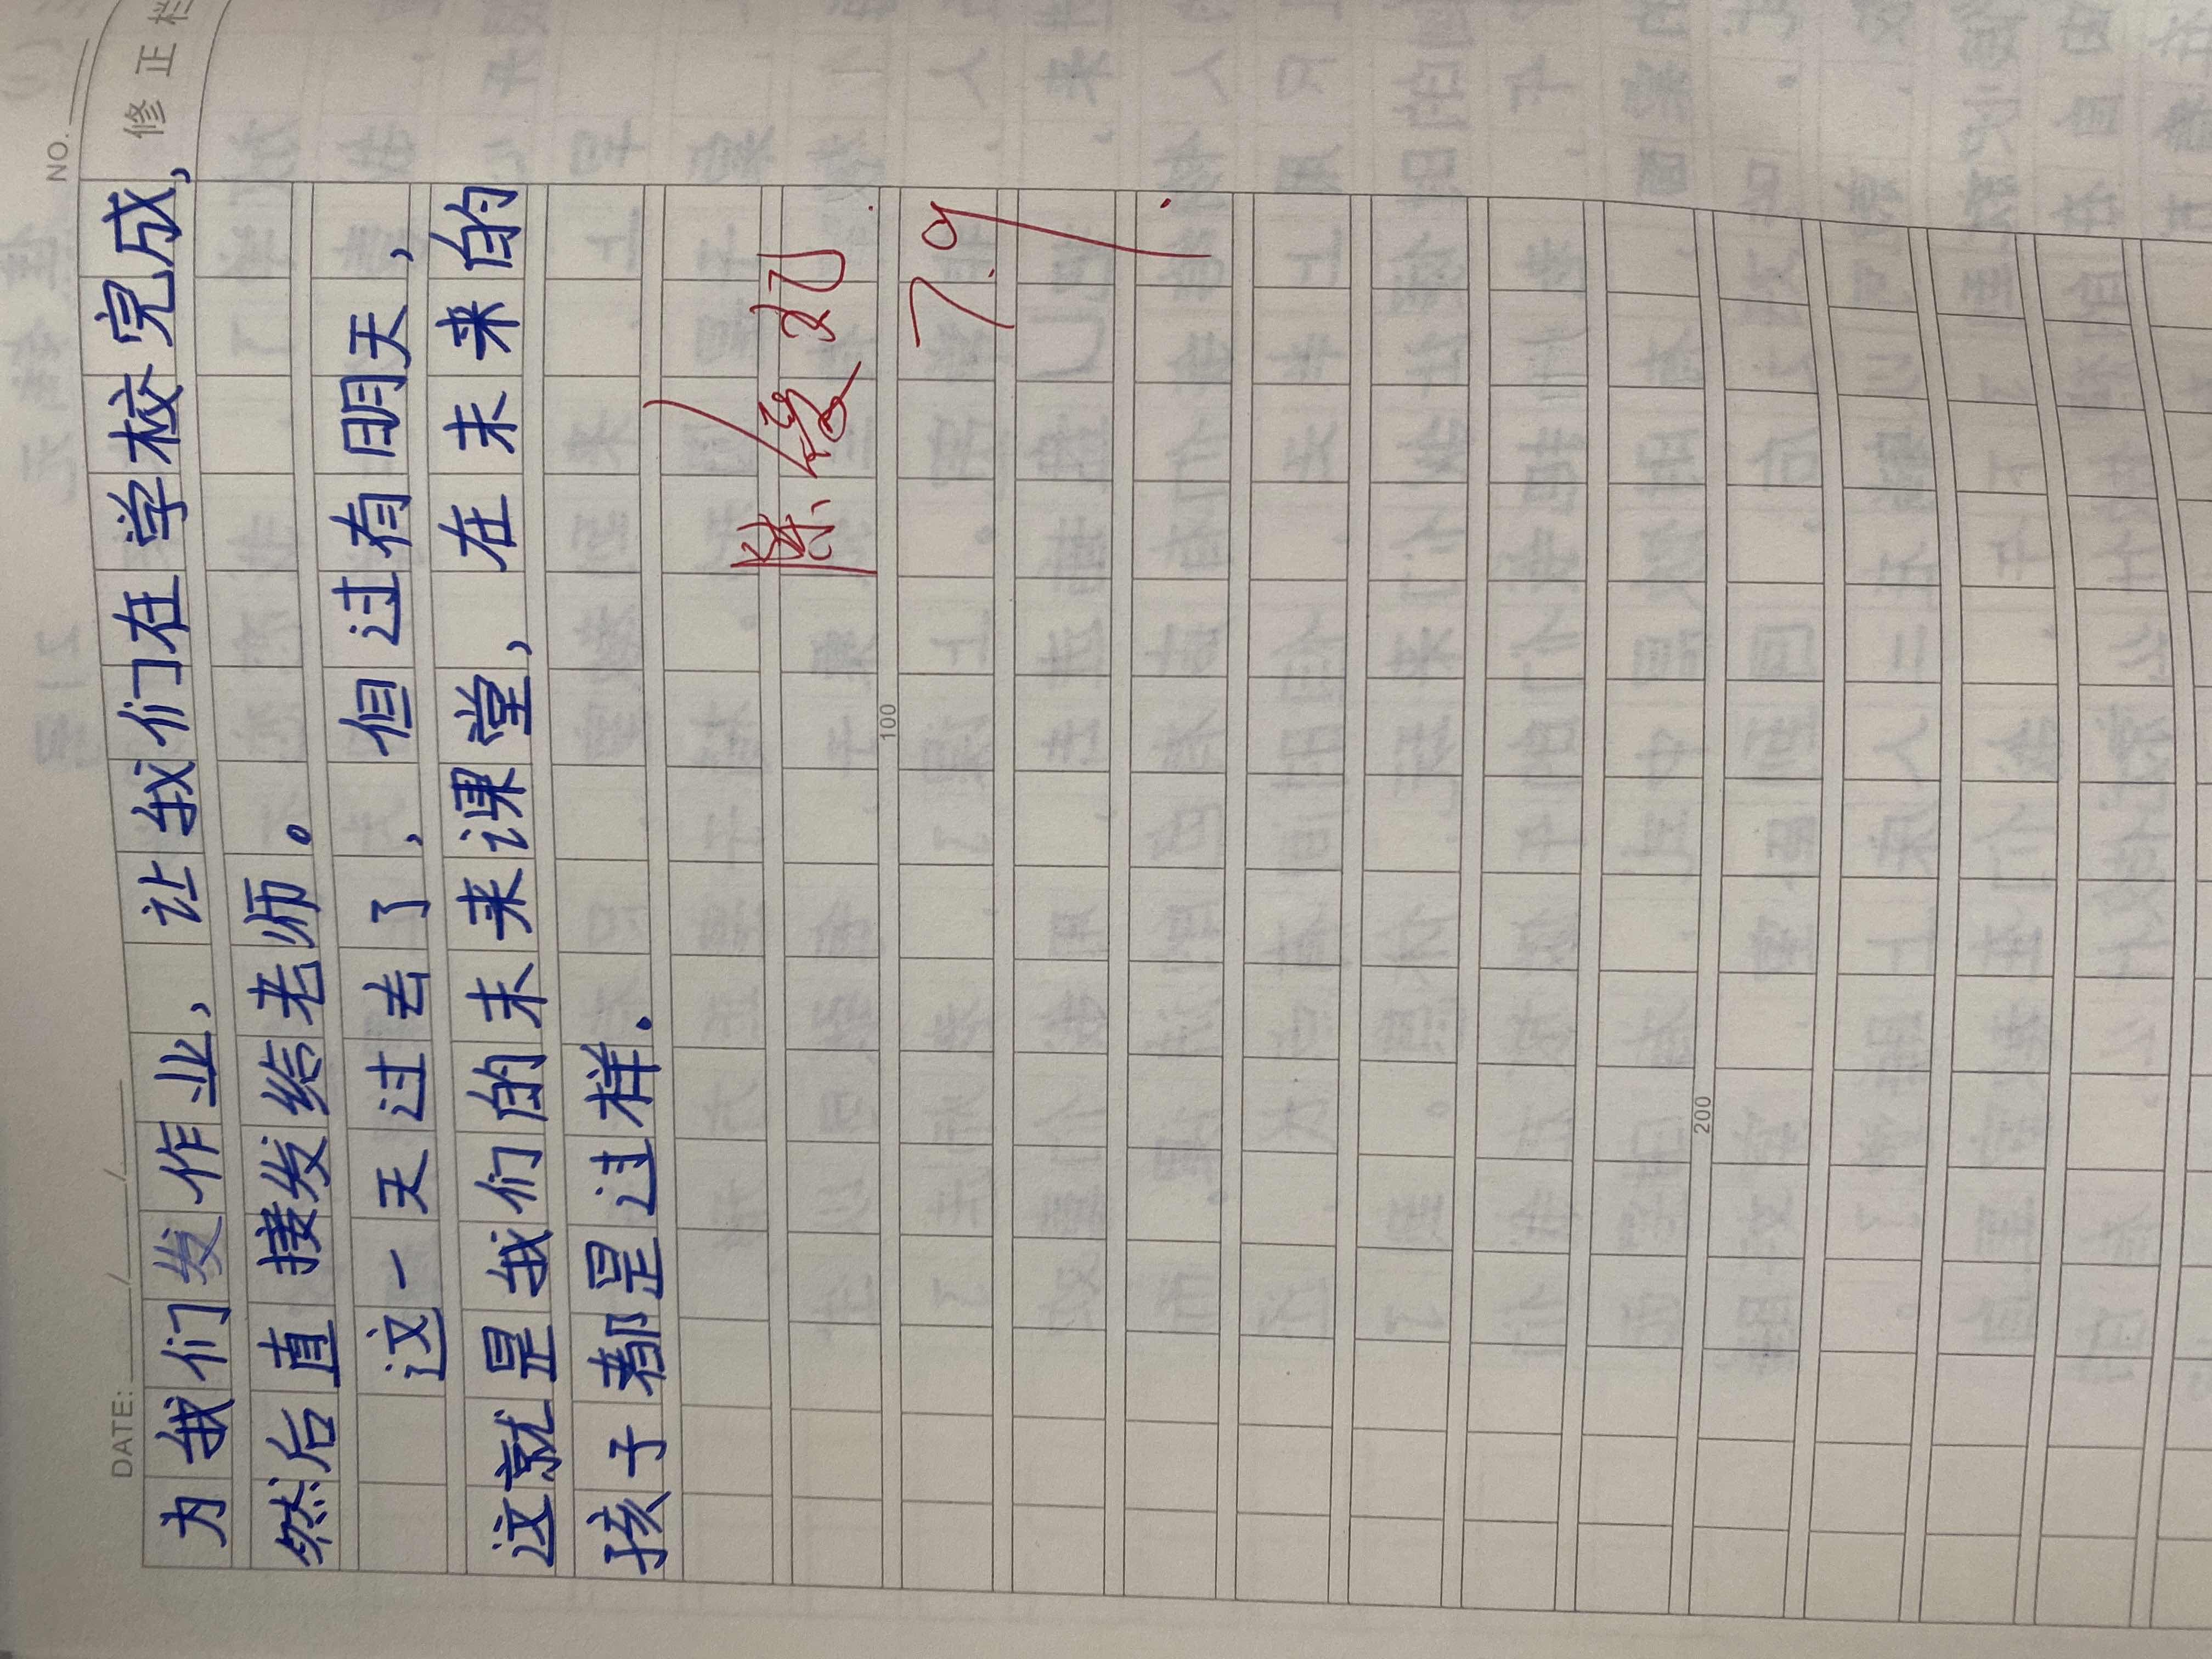 NO.
DATE: / /
修正栏
为我们发作业，让我们在学校完成，
然后直接发给老师。
这一天过去了，但过有明天，
这就是我们的未来课堂，在未来的
孩子都是过样.
7.9
100
200